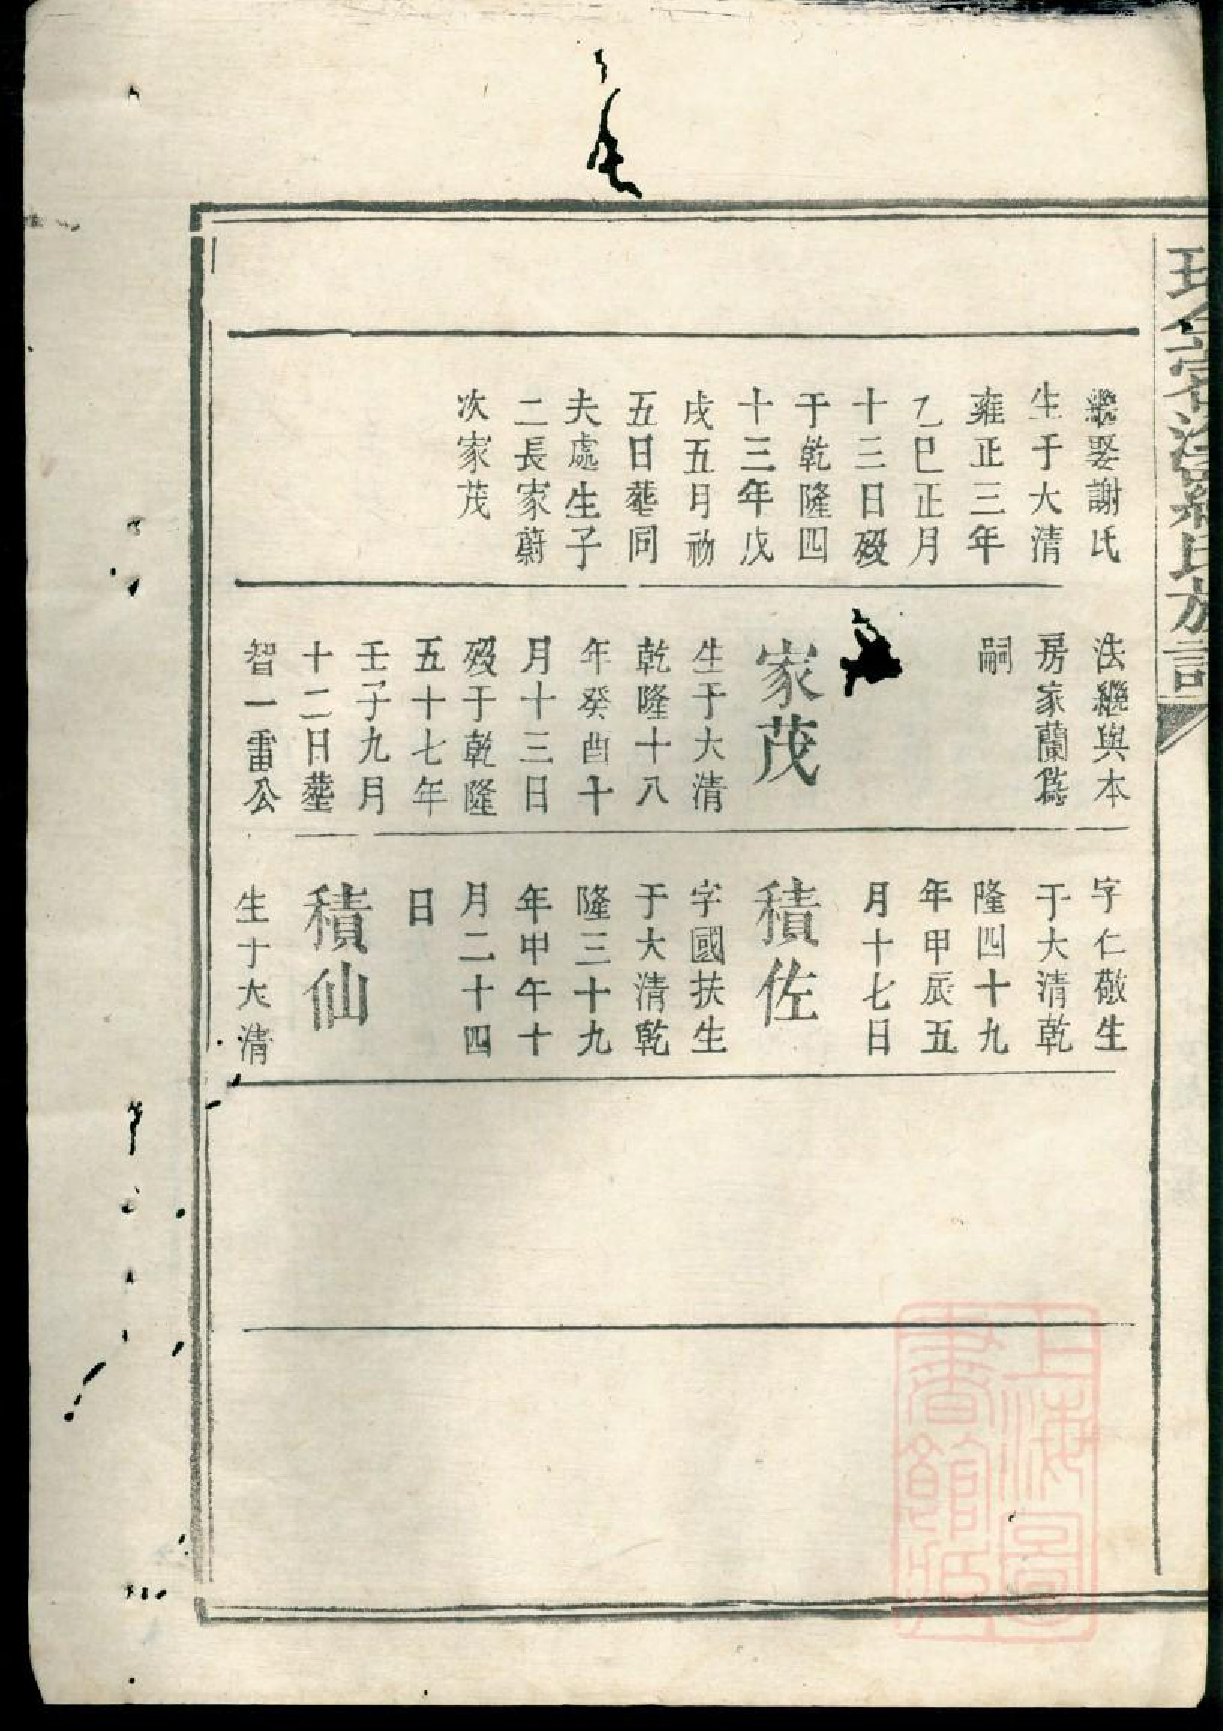 繼娶謝氏
生于大清
雍正三年
乙巳正月
十三日殁
于乾隆四
十三年戊
戌五月初
五日塟同
夫處生子
二長家蔚
次家茂
法繼與本
房家蘭爲
嗣
家茂
生于大清
乾隆十八
年癸酉十
月十三日
殁于乾隆
五十七年
壬子九月
十二日塟
智一雷公
字仁敬生
于大清乾
隆四十九
年甲辰五
月十七日
積佐
字國扶生
于大清乾
隆三十九
年甲午十
月二十四
日
積仙
生于大清
上海圖
書館藏